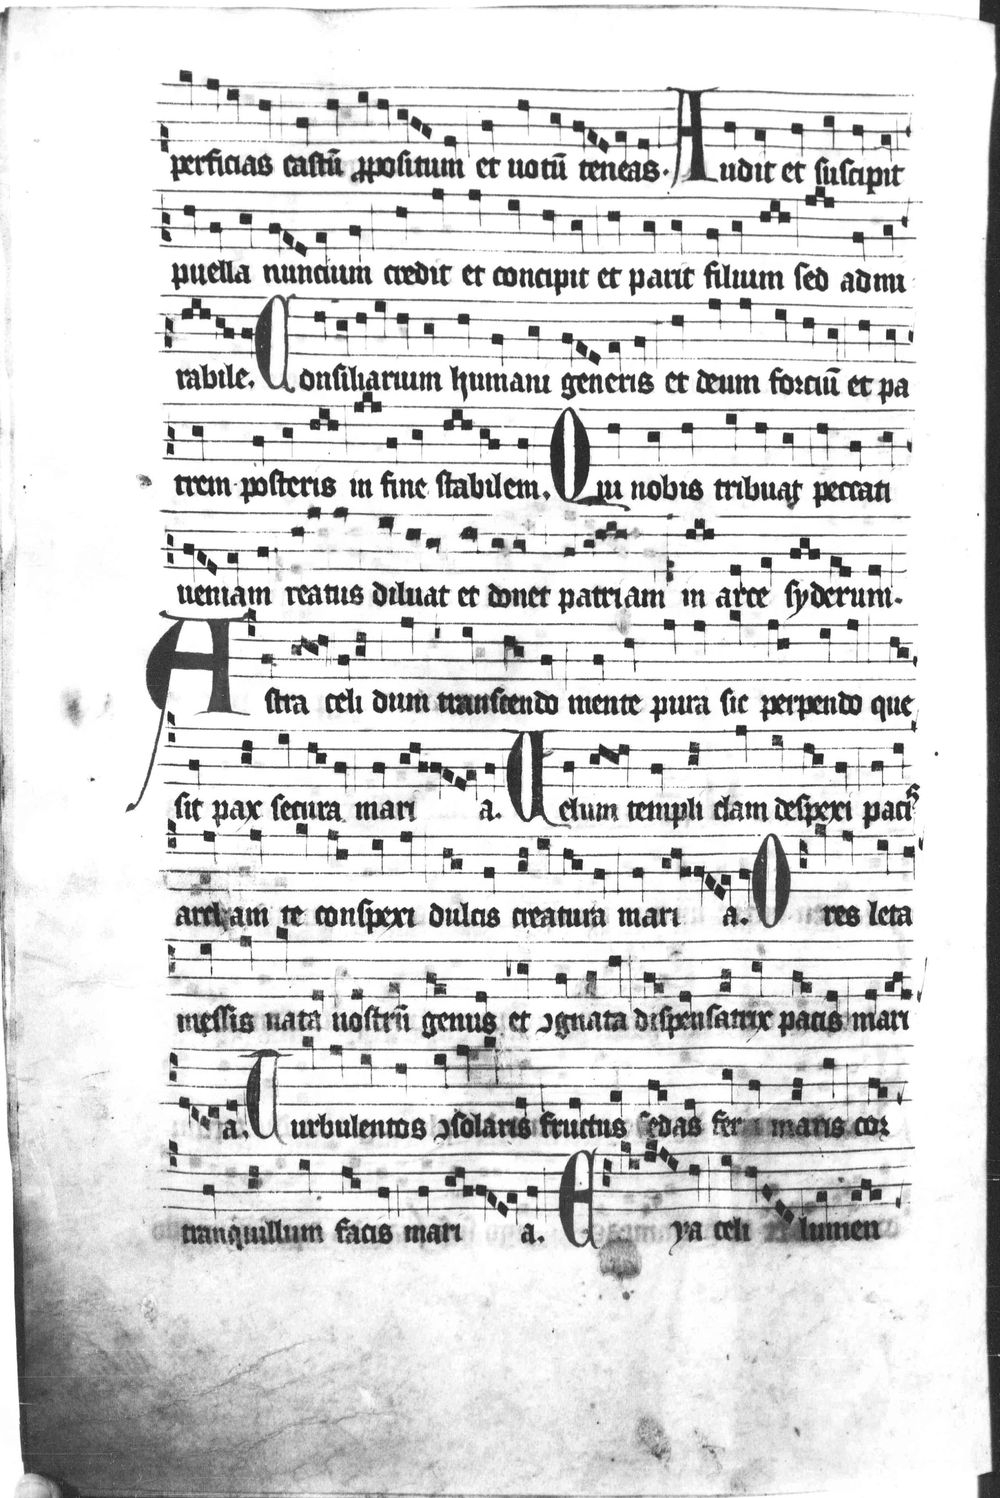 perficias castū ꝓpositum et uotū teneas. Audit et suscipit
puella nuncium credit et concipit et parit filium sed admi
rabile. Consiliarium humani generis et deum forciū et pa
trem posteris in fine stabilem. Qui nobis tribuat peccati
ueniam reatus diluat et donet patriam in arce syderum.
Astra celi dum transcendo mente pura sic perpendo que
sit pax secura mari a. Celum templi clam despexi pacis
archam te conspexi dulcis creatura mari a. O res leta
messis nata nostrū genus et ꝯgnata dispensatrix pacis mari
a. Turbulentos ꝯsolaris fructus sedas maris coꝝ
tranquillum facis mari a. Eya celi lumen